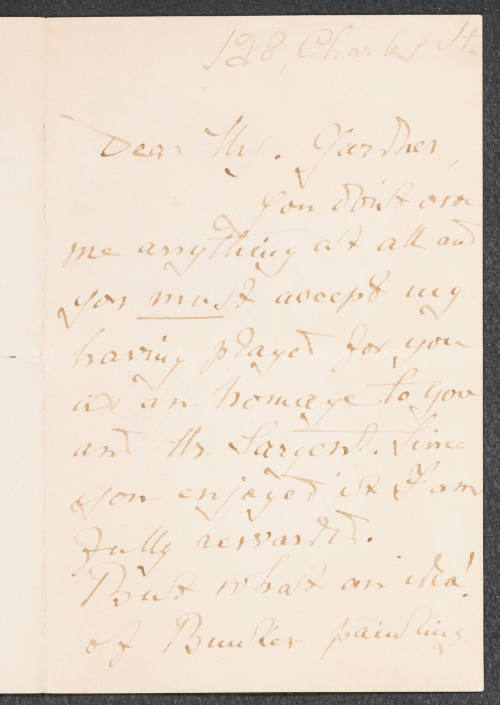 128, Charles St.
Dear Mrs. Gardner,
You don't owe
me anything at all and
you must accept my
having played for you
as an homage to you
and Mr. Sargent. Since
you enjoyed it I am
fully rewarded.
But what an idea!
of Bunker painting